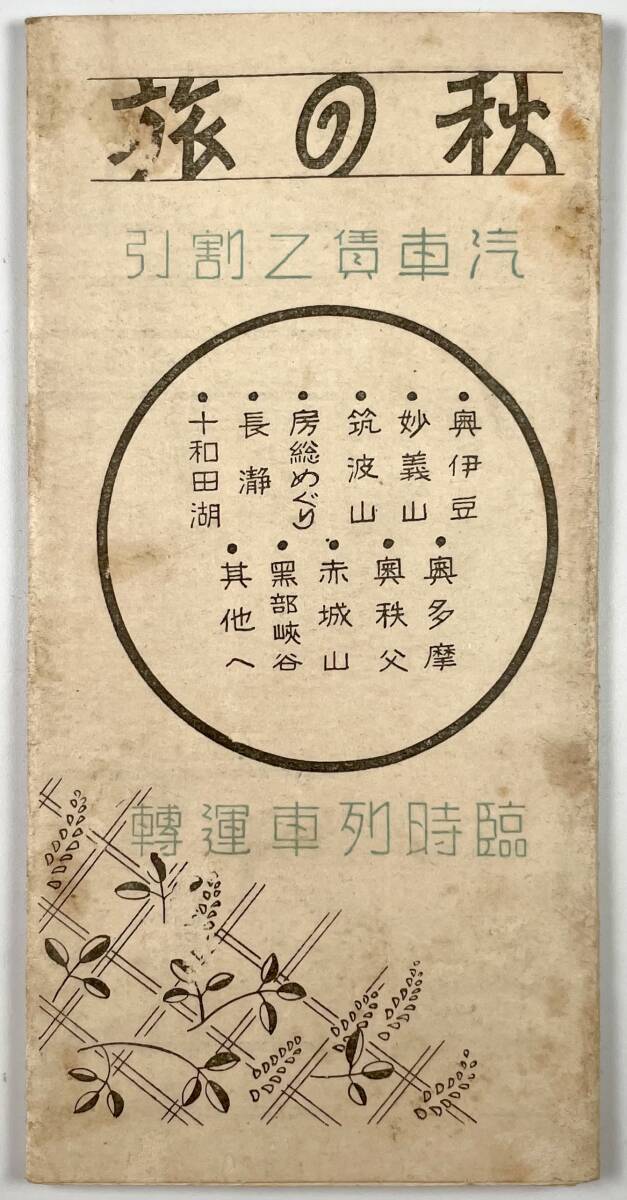 秋の旅
汽車賃乙割引
奥伊豆
妙義山
筑波山
房総めぐり
長瀞
十和田湖
奥多摩
奥秩父
赤城山
黑部峽谷
其他へ
臨時列車運轉